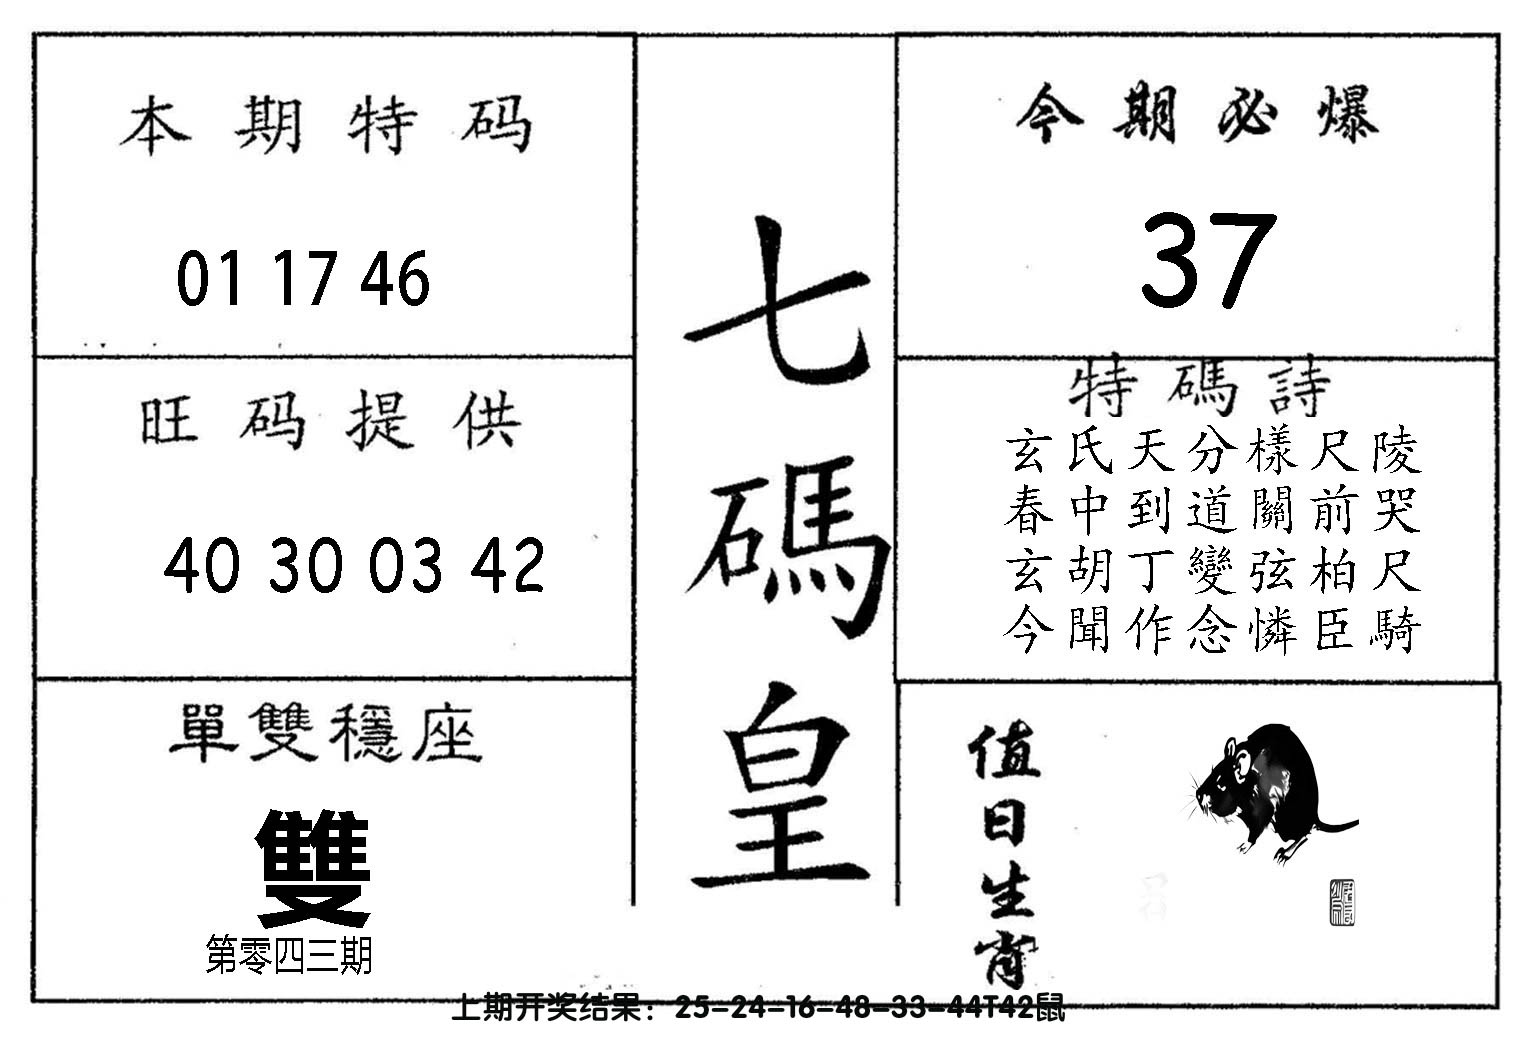 本期特码
01 17 46
旺码提供
40 30 03 42
單雙穩座
雙
第零四三期
七碼皇
今期必爆
37
特碼詩
玄氏天分樣尺陵
春中到道關前哭
玄胡丁變弦柏尺
今聞作念憐臣騎
值日生肖
上期开奖结果：25-24-16-48-33-44T42鼠